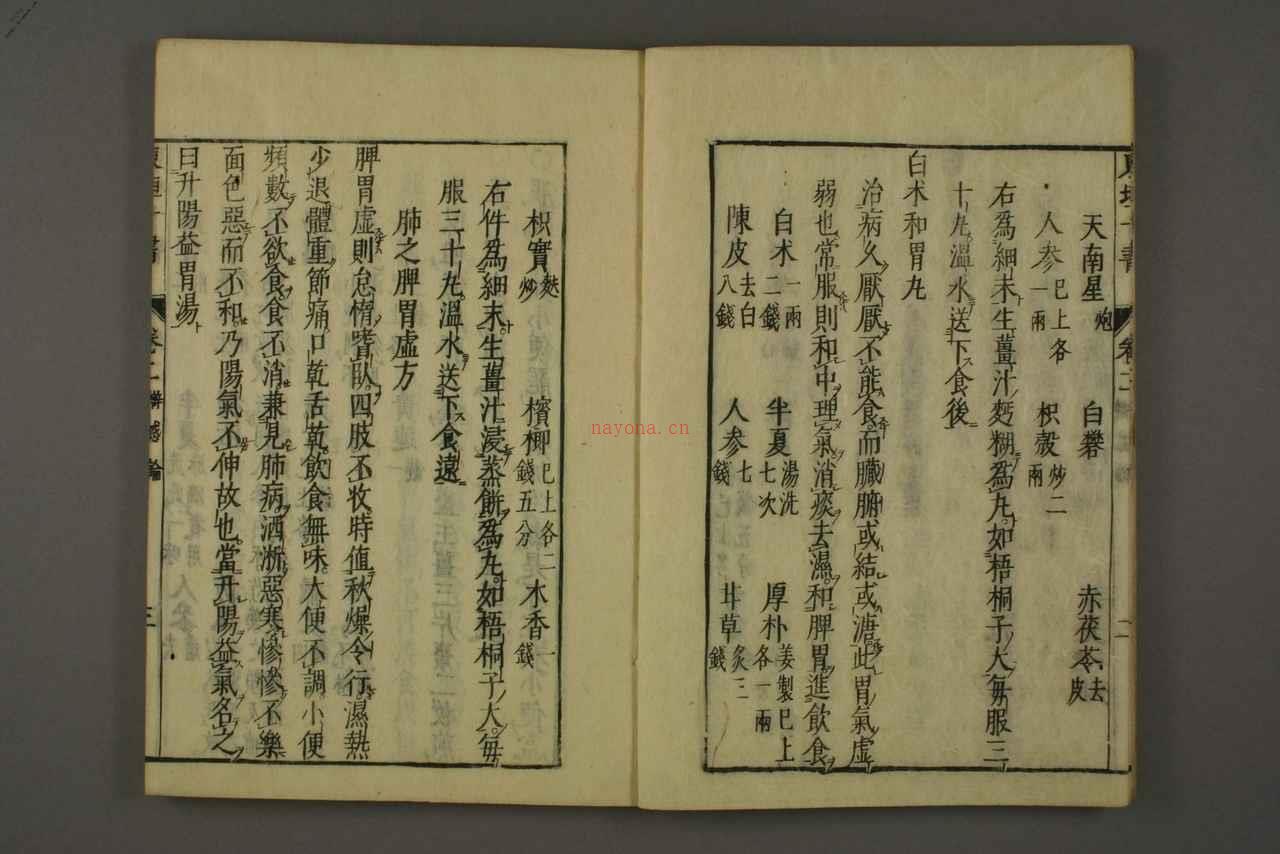 天南星炮 白礬 赤茯苓去皮
人参已上各一兩 枳殼炒二兩
右爲細末生薑汁麪糊爲丸如梧桐子大毎服三
十丸溫水送下食後
白术和胃丸
治病久厭厭不能食而臟腑或結或溏此胃氣虛
弱也常服則和中理氣消痰去濕和脾胃進飲食
白术一兩二錢 半夏湯洗七次 厚朴姜製已上各一兩
陳皮去白八錢 人参七錢 甘草炙三錢
枳實麩炒 檳榔已上各二錢五分 木香一錢
右件爲細末生薑汁浸蒸餅爲丸如梧桐子大毎
服三十丸溫水送下食遠
肺之脾胃虛方
脾胃虛則怠惰嗜臥四肢不收時值秋燥令行濕熱
少退體重節痛口乾舌乾飲食無味大便不調小便
頻數不欲食食不消兼見肺病洒淅惡寒慘慘不樂
面色惡而不和乃陽氣不伸故也當升陽益氣名之
曰升陽益胃湯
卷二
三
nayona.cn